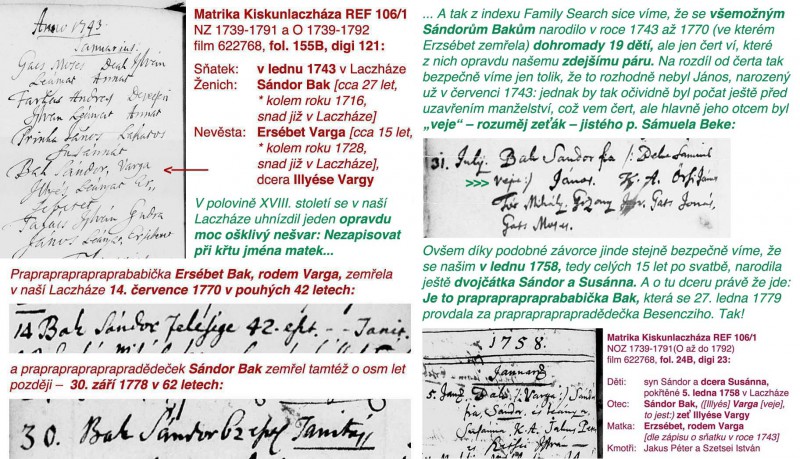 Anno 1743
Januarius.
Gaes Moses Deak Istvan
Leamat Annat
Farkas Andreas
Istvan Leamat Annat
Prinka János Lakatos
Susánnat
Bak Sándor, Varga
Illyés, Leamat Er,
sebetet
János Leanz, Ersebetet
Matrika Kiskunlaczháza REF 106/1
NZ 1739-1791 a O 1739-1792
film 622768, fol. 155B, digi 121:
Sňatek: v lednu 1743 v Laczháze
Ženich: Sándor Bak [cca 27 let,
* kolem roku 1716,
snad již v Laczháze]
Nevěsta: Ersébet Varga [cca 15 let,
* kolem roku 1728,
snad již v Laczháze],
dcera Illyése Vargy
V polovině XVIII. století se v naší
Laczháze uhnízdil jeden opravdu
moc ošklivý nešvar: Nezapisovat
při křtu jména matek...
Praprapraprapraprababička Ersébet Bak, rodem Varga, zemřela
v naší Laczháze 14. července 1770 v pouhých 42 letech:
14 Bak Sándor felesige 42. eszt. - - Tanit.
a praprapraprapraprapradědeček Sándor Bak zemřel tamtéž o osm let
později – 30. září 1778 v 62 letech:
30. Bak Sándor 62 eszt Tanitás
... A tak z indexu Family Search sice víme, že se všemožným
Sándorům Bakům narodilo v roce 1743 až 1770 (ve kterém
Erzsébet zemřela) dohromady 19 dětí, ale jen čert ví, které
z nich opravdu našemu zdejšímu páru. Na rozdíl od čerta tak
bezpečně víme jen tolik, že to rozhodně nebyl János, narozený
už v červenci 1743: jednak by tak očividně byl počat ještě před
uzavřením manželství, což vem čert, ale hlavně jeho otcem byl
„veje“ – rozuměj zeťák – jistého p. Sámuela Beke:
31. Julij. Bak Sándor fia /: Beke Samuel
>>> veje :/ János. K. A. Örsi János
Gats Jonás,
Gats Moses.
Ovšem díky podobné závorce jinde stejně bezpečně víme, že
se našim v lednu 1758, tedy celých 15 let po svatbě, narodila
ještě dvojčátka Sándor a Susánna. A o tu dceru právě že jde:
Je to praprapraprapraprababička Bak, která se 27. ledna 1779
provdala za praprapraprapraprapradědečka Besencziho. Tak!
1758.
Januarij
5. Bak /: Varga :/ Sándor
fia, Sándor, és leánya
Susánna K. A. Jakus Peter
és Szetsei István
Matrika Kiskunlaczháza REF 106/1
NOZ 1739-1791(O až do 1792)
film 622768, fol. 24B, digi 23:
Děti: syn Sándor a dcera Susánna,
pokřtěné 5. ledna 1758 v Laczháze
Otec: Sándor Bak, ([Illyés] Varga [veje],
to jest:) zeť Illyése Vargy
Matka: Erzsébet, rodem Varga
[dle zápisu o sňatku v roce 1743]
Kmotři: Jakus Péter a Szetsei István